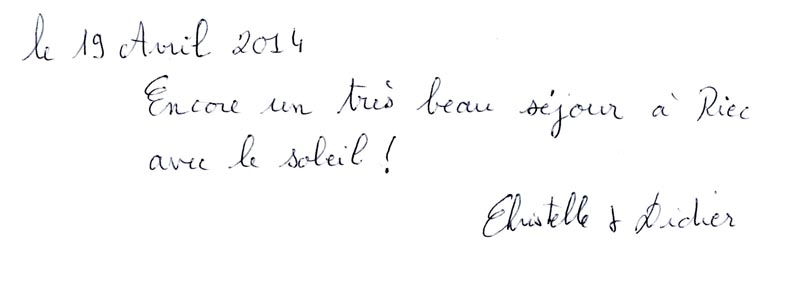 le 19 Avril 2014
Encore un très beau séjour à Riec
avec le soleil !
Christelle & Didier